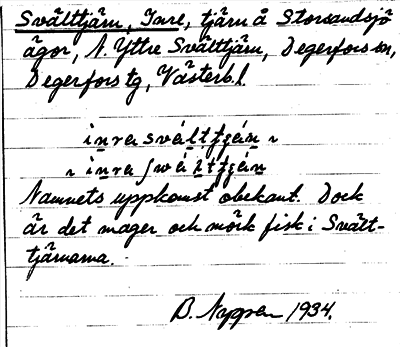 Svälttjärn, Inre, tjärn å Storsandsjö
ägor, N. Yttre Svälttjärn, Degerfors sn,
Degerfors tg, Västerb. l.
inra svältţján
inra ʃwáltţján
Namnets uppkomst obekant. Dock
är det mager och mörk fisk i Svält-
tjärnarna.
B. Nygren 1934.